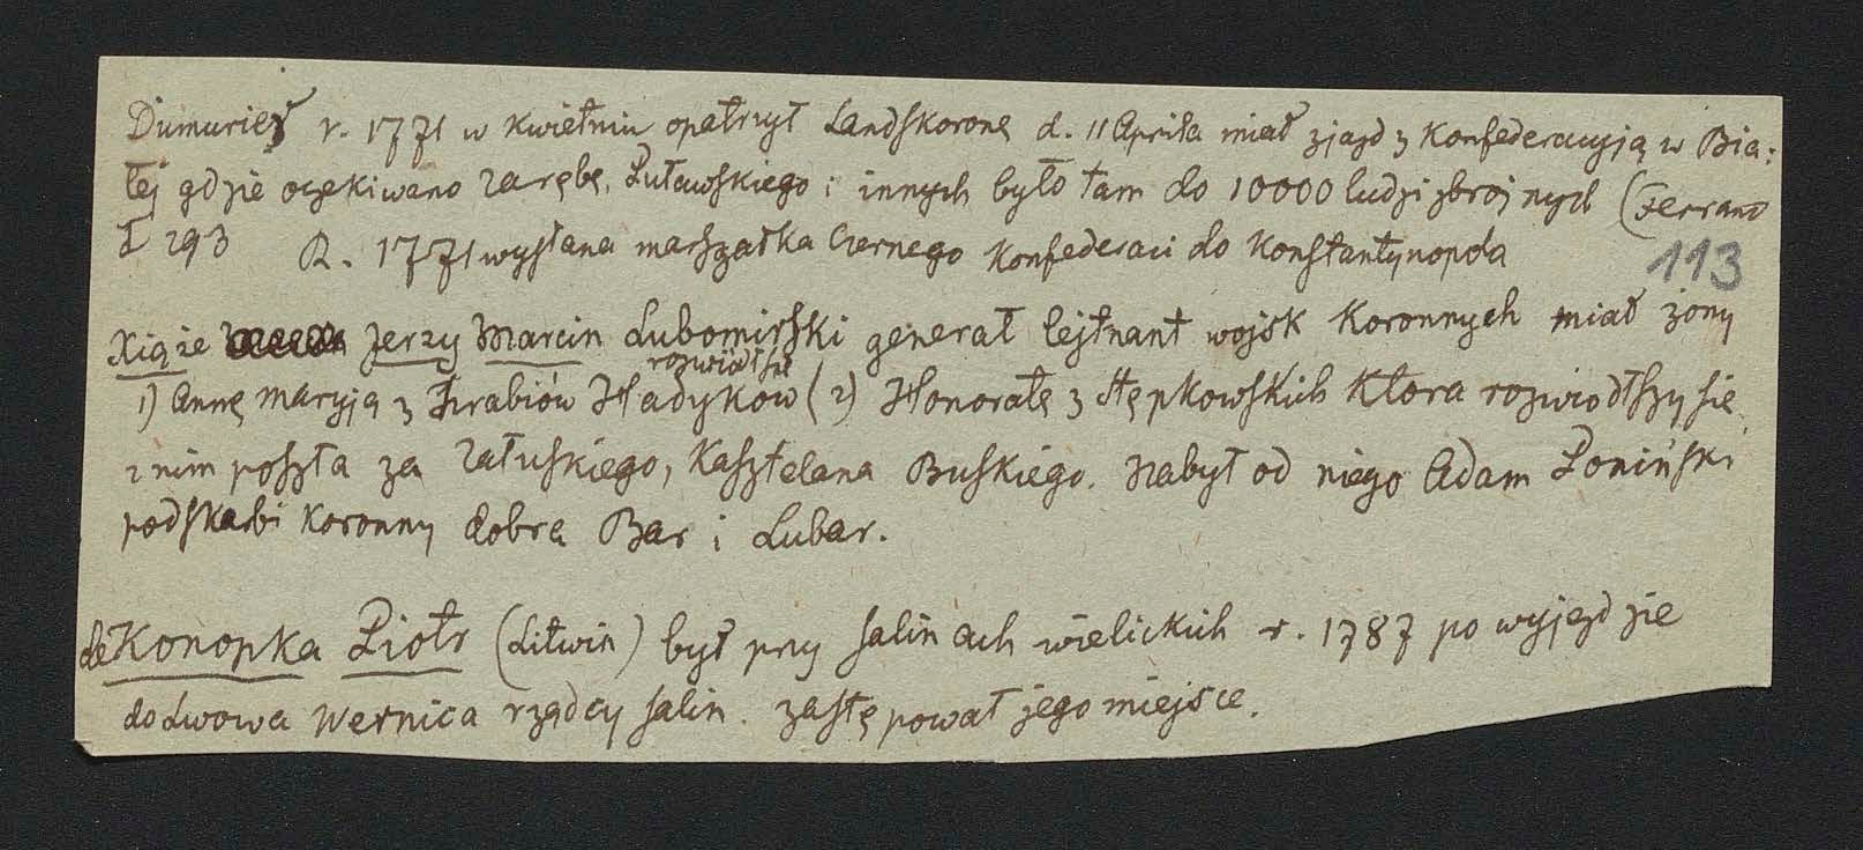 Dumuriez r. 1771 w kwietniu opatrzył Landskoronę d. 11 Aprila miał zjazd z Konfederacyją w Bia:
łej gdzie oczekiwano Zarębę, Puławskiego i innych było tam do 10000 ludzi zbrojnych (Ferrand
I 293 R. 1771 wysłana marszałka Czernego Konfederaci do Konstantynopola
113
Xiąże Jerzy Marcin Lubomirski generał lejtnant wojsk Koronnych miał żony
rozwiódł się
1) Annę Maryją z Hrabiów Hadyków (2) Honoratę z Stępkowskich Która rozwiodłszy się
z nim poszła za Załuskiego, Kasztelana Buskiego. Nabył od niego Adam Poniński
podskarbi Koronny dobra Bar i Lubar.
de Konopka Piotr (Litwin) był przy salinach wielickich r. 1787 po wyjezdzie
do Lwowa Wernica rządcy salin. zastępował jego miejsce.